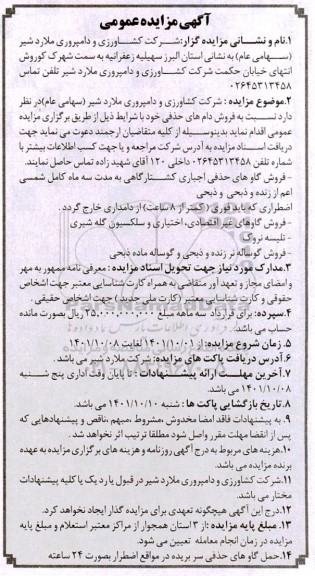 آگهی مزایده عمومی
۱.نام و نشانی مزایده گزار:شرکت کشاورزی و دامپروری ملارد شیر
(سهامی عام) به نشانی استان البرز سهیلیه زعفرانیه به سمت شهرک کوروش
انتهای خیابان حکمت شرکت کشاورزی و دامپروری ملارد شیر تلفن تماس
۰۲۶۴۵۳۱۳۴۵۸
۲.موضوع مزایده : شرکت کشاورزی و دامپروری ملارد شیر (سهامی عام)در نظر
دارد نسبت به فروش دام های حذفی خود با شرایط ذیل از طریق برگزاری مزایده
عمومی اقدام نماید بدینوسیله از کلیه متقاضیان ارجمند دعوت می نماید جهت
دریافت اسناد مزایده به آدرس شرکت مراجعه و یا جهت کسب اطلاعات بیشتر با
شماره تلفن ۰۲۶۴۵۳۱۳۴۵۸ داخلی ۱۲۰ آقای شهید زاده تماس حاصل نمایند.
- فروش گاو های حذفی اجباری کشتارگاهی به مدت سه ماه کامل شمسی
اعم از زنده و ذبحی و ذبحی
اضطراری که باید فوری (کمتر از ۸ ساعت) از دامداری خارج گردد.
- فروش گاوهای غیر اقتصادی، اختیاری و سلکسیون گله شیری
- تلیسه نروک
- فروش گوساله نر زنده و ذبحی و گوساله ماده ذبحی
۳.مدارک مورد نیاز جهت تحویل اسناد مزایده : معرفی نامه ممهور به مهر
و امضای مجاز و تعهد آور متقاضی به همراه کارت شناسایی معتبر جهت اشخاص
حقوقی و کارت شناسایی معتبر (کارت ملی جدید) جهت اشخاص حقیقی.
۴.سپرده: برای قرارداد سه ماهه مبلغ ۲۵,۰۰۰,۰۰۰,۰۰۰ ریال بصورت مانده
حساب می باشد.
۵. زمان شروع مزایده: از ۱۴۰۱/۱۰/۰۱ لغایت ۱۴۰۱/۱۰/۰۸
۶.آدرس دریافت پاکت های مزایده: شرکت ملارد شیر می باشد.
۷.آخرین مهلت ارائه پیشنهادات : تا پایان وقت اداری پنج شنبه
۱۴۰۱/۱۰/۰۸ می باشد.
۸.تاریخ بازگشایی پاکت ها : شنبه ۱۴۰۱/۱۰/۱۰ می باشد.
۹. به پیشنهادات فاقد امضا مخدوش ،مشروط ،مبهم ،ناقص و پیشنهادهایی که
پس از انقضا مهلت مقرر واصل شود مطلقا ترتیب اثر نخواهد شد.
۱۰.هزینه های مربوط به درج آگهی روزنامه و هزینه های برگزاری مزایده به عهده
برنده مزایده می باشد.
۱۱.شرکت کشاورزی و دامپروری ملارد شیر در قبول یا رد یک یا کلیه پیشنهادات
مختار می باشد.
۱۲.درج این آگهی هیچگونه تعهدی برای مزایده گذار ایجاد نخواهد کرد.
۱۳. مبلغ پایه مزایده :از ۳ استان همجوار از مراکز معتبر استعلام و مبلغ پایه
مزایده در زمان انجام معامله تعیین می شود.
۱۴.حمل گاو های حذفی سر بریده در مواقع اضطرار بصورت ۲۴ ساعته